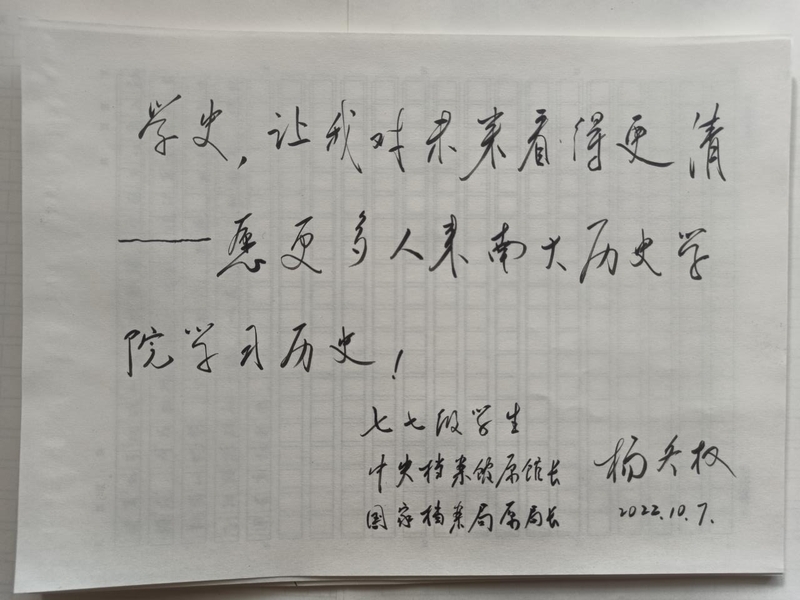 学史，让我对未来看得更清
——愿更多人来南大历史学
院学习历史！
七七级学生
中央档案馆原馆长
国家档案局原局长
杨冬权
2022.10.7.